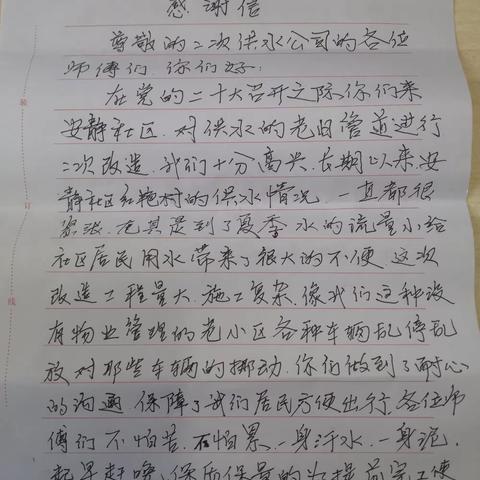 感谢信
尊敬的二次供水公司的各位
师傅们.你们好:
在党的二十大召开之际,你们来
安静社区.对供水的老旧管道进行
二次改造.我们十分高兴.长期以来.安
静社区红艳村的供水情况.一直都很
紧张.尤其是到了夏季水的流量小给
社区居民用水带来了很大的不便.这次
改造工程量大.施工复杂.像我们这种没
有物业管理的老小区各种车辆乱停乱
放对那些车辆的挪动.你们做到了耐心
的沟通.保障了我们居民方便出行.各位师
傅们不怕苦.不怕累.一身汗水.一身泥.
起早赶晚.保质保量的为提前完工使
装
订
线